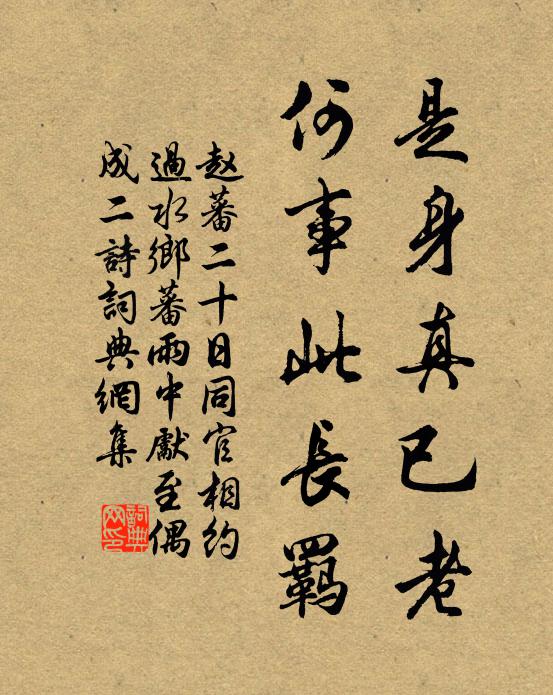 是身真已老
何事此長羈
赵蕃二十日同官相約
過水鄉蕃雨中獻至偶
成二詩詞典網集
詞典网印